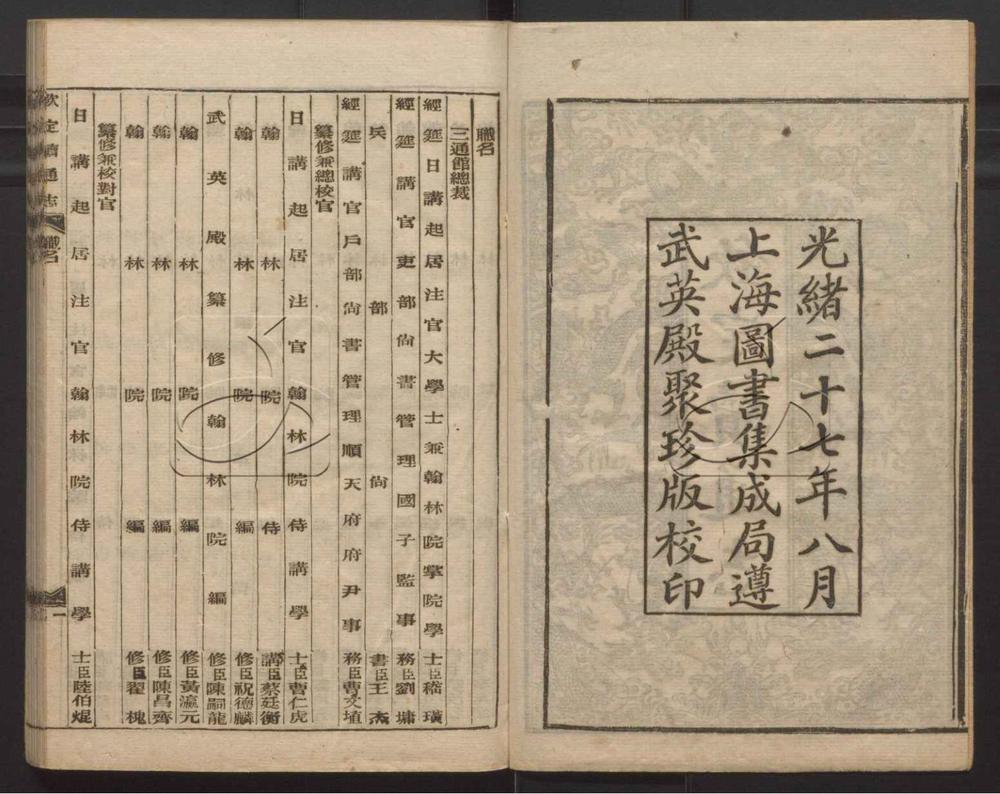 光緒二十七年八月
上海圖書集成局遵
武英殿聚珍版校印
職名
三通館總裁
經筵日講起居注官大學士兼翰林院掌院學士臣嵇璜
經筵講官吏部尚書管理國子監事務臣劉墉
兵部尚書臣王杰
經筵講官戶部尚書管理順天府府尹事務臣曹文埴
纂修兼總校官
日講起居注官翰林院侍講學士臣曹仁虎
翰林院侍講臣蔡廷衡
翰林院編修臣祝德麟
武英殿纂修翰林院編修臣陳嗣龍
翰林院編修臣黃瀛元
翰林院編修臣陳昌齊
翰林院編修臣翟槐
纂修兼校對官
日講起居注官翰林院侍講學士臣陸伯焜
欽定續通志 職名 一